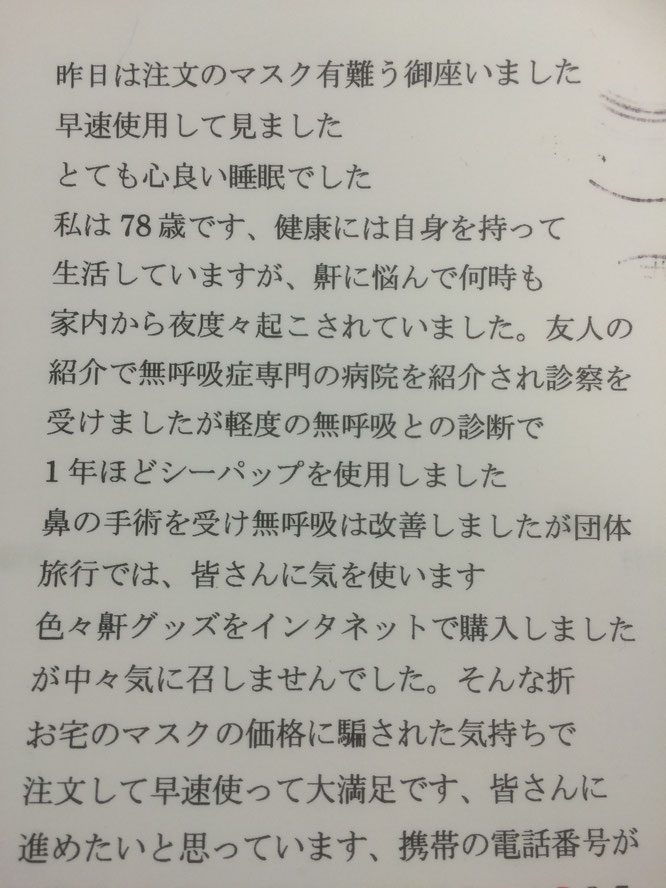 昨日は注文のマスク有難う御座いました
早速使用して見ました
とても心良い睡眠でした
私は 78 歳です、健康には自身を持って
生活していますが、鼾に悩んで何時も
家内から夜度々起こされていました。友人の
紹介で無呼吸症専門の病院を紹介され診察を
受けましたが軽度の無呼吸との診断で
1 年ほどシーパップを使用しました
鼻の手術を受け無呼吸は改善しましたが団体
旅行では、皆さんに気を使います
色々鼾グッズをインタネットで購入しました
が中々気に召しませんでした。そんな折
お宅のマスクの価格に騙された気持ちで
注文して早速使って大満足です、皆さんに
進めたいと思っています、携帯の電話番号が